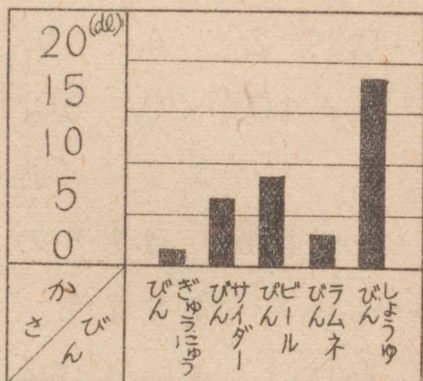 20(dl)
15
10
5
0
かさ
びん
ぎゅうにゅうびん
サイダーびん
ビールびん
ラムネびん
しょうゆびん